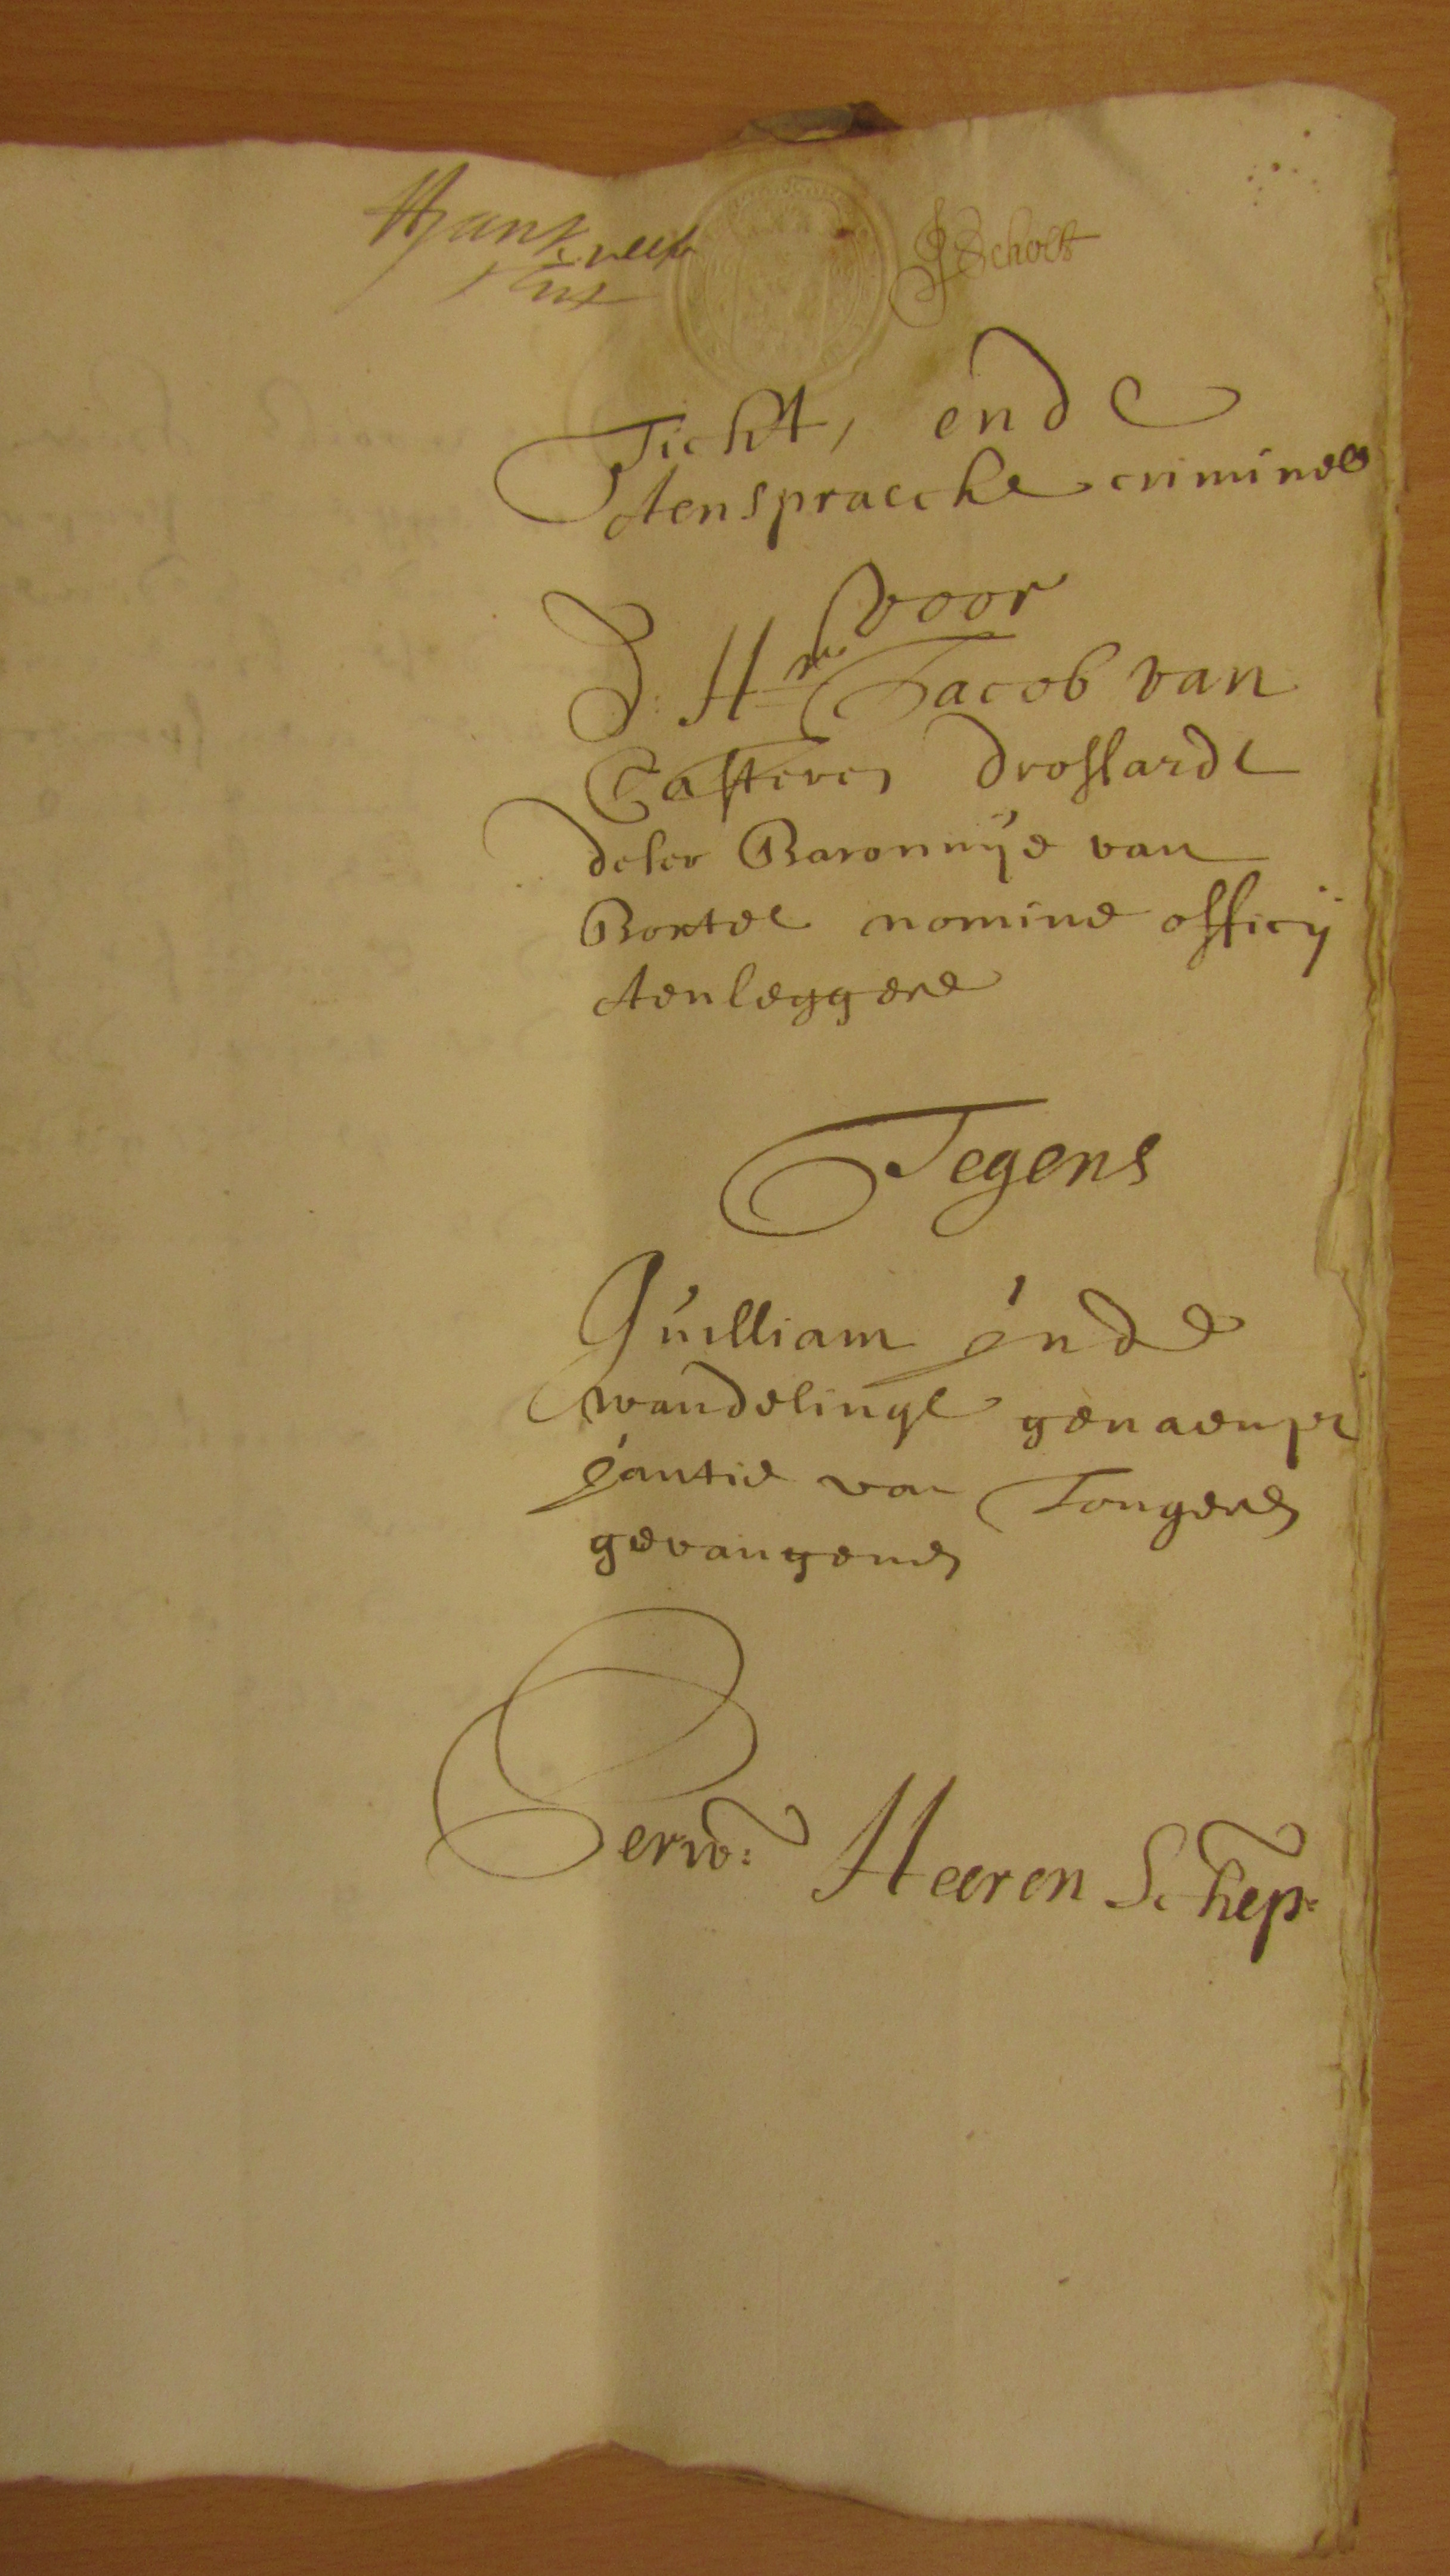 JScholt
Ticht, ende
Aenspraecke crimineel
voor
D: Hr Jacob van
Casteren drossarde
deser Baronnije van
Boxtel nomine officij
Aenleggere
Tegens
Guilliam inde
wandelinge genaempt
jantie van Tongeren
gevangenen
Eerw: Heeren Schep: